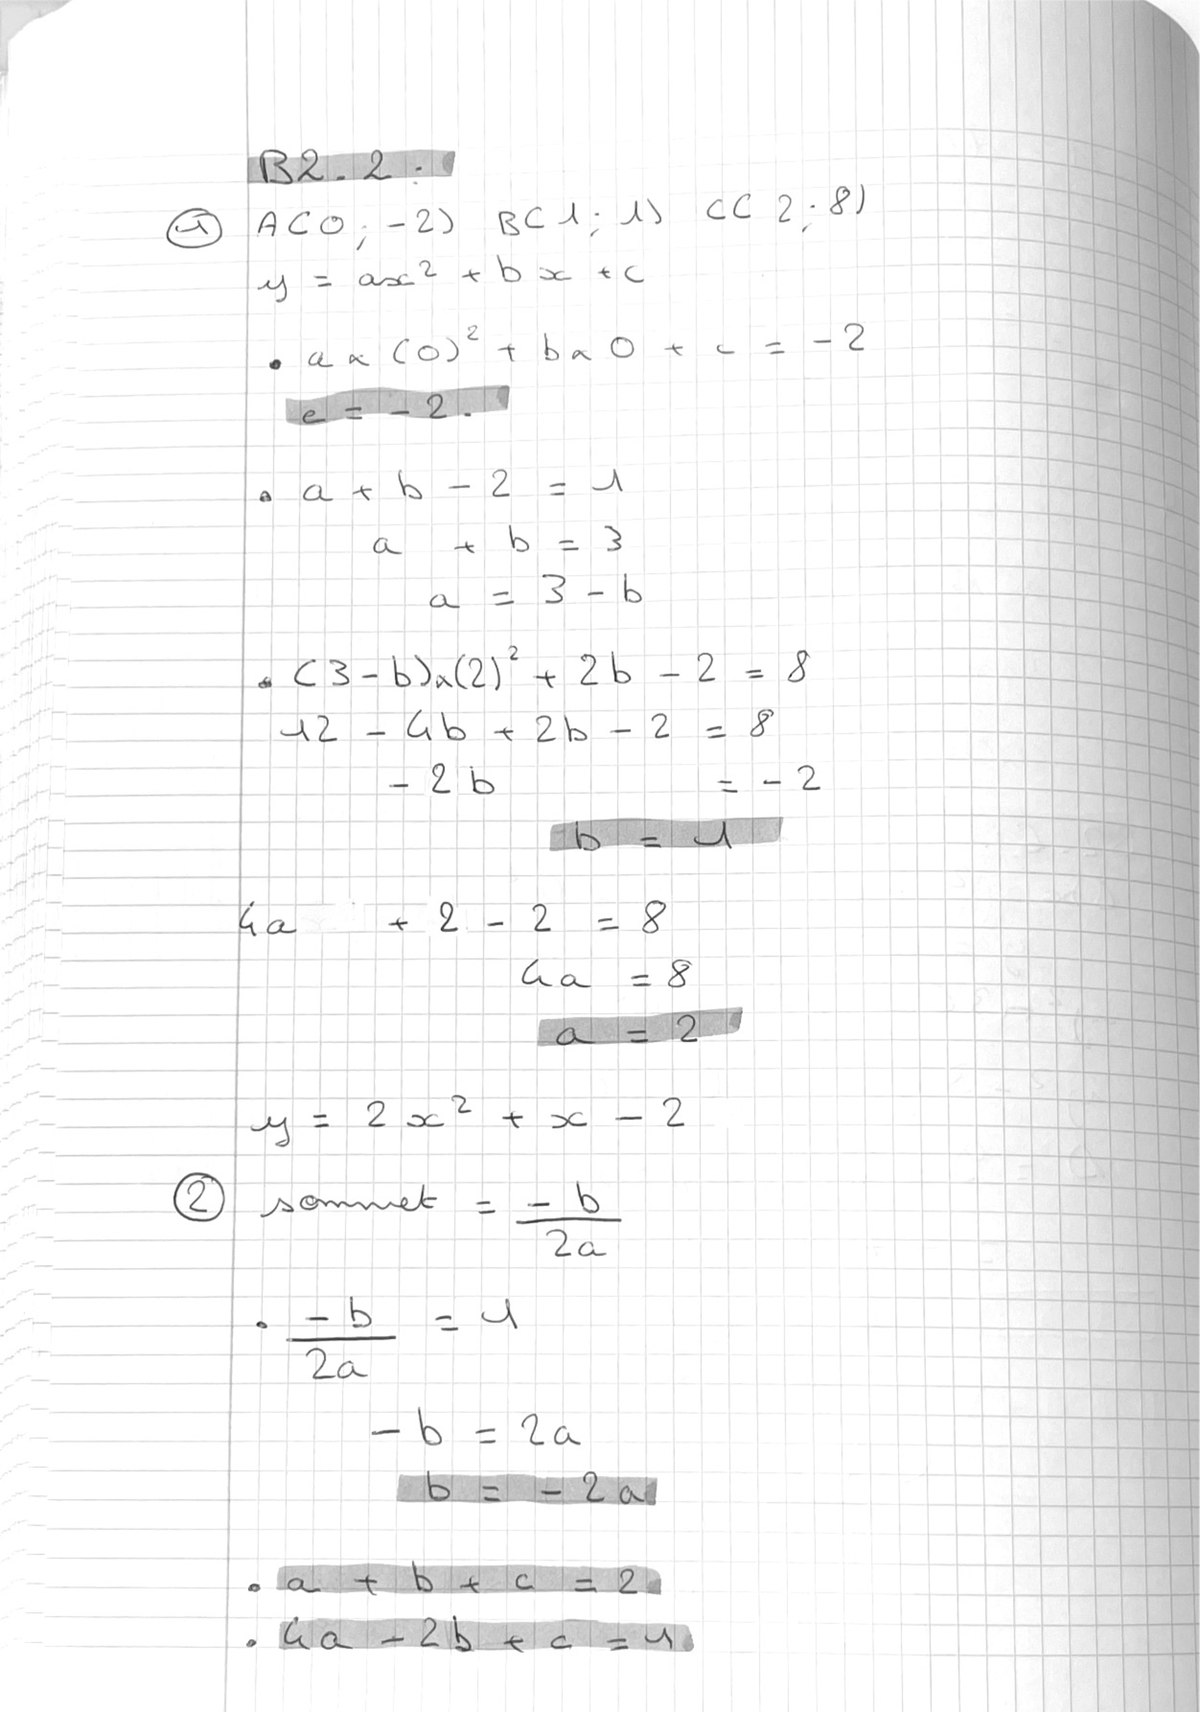 B2.2.
① A(0; -2) B(1; 1) C(2; 8)
y = ax² + bx + c
• a × (0)² + b × 0 + c = -2
c = -2.
• a + b - 2 = 1
a + b = 3
a = 3 - b
• (3 - b) × (2)² + 2b - 2 = 8
12 - 4b + 2b - 2 = 8
- 2b = -2
b = 1
4a + 2 - 2 = 8
4a = 8
a = 2
y = 2x² + x - 2
② sommet = -b/2a
• -b/2a = 1
-b = 2a
b = -2a
• a + b + c = 2
• 4a - 2b + c = 1